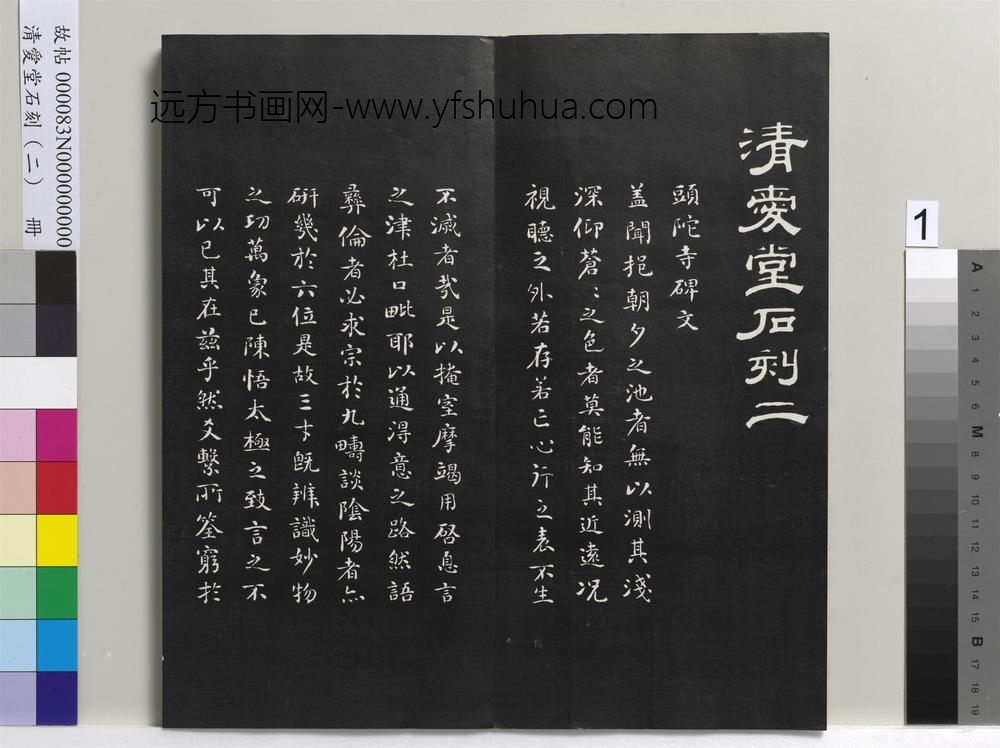 清愛堂石刻二
頭陀寺碑文
盖聞挹朝夕之池者無以測其淺
深仰蒼〻之色者莫能知其近遠況
視聽之外若存若亡心行之表不生
不滅者哉是以掩室摩竭用啓息言
之津杜口毗耶以通淂意之路然語
彝倫者必求宗於九疇談陰陽者亦
研幾於六位是故三才既辨識妙物
之功萬象已陳悟太極之致言之不
可以已其在兹乎然爻繫所筌窮於
远方书画网-www.yfshuhua.com
故帖 000083N000000000
清愛堂石刻（二） 冊
1
A
1
2
3
4
5
6
M
8
9
10
11
12
13
14
15
B
17
18
19